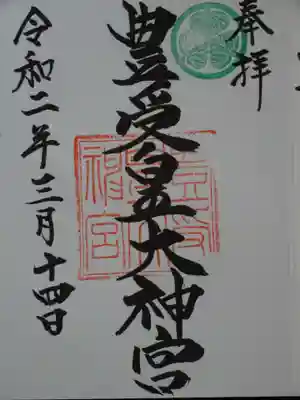 奉拝
豊受皇大神宮
令和二年三月十四日